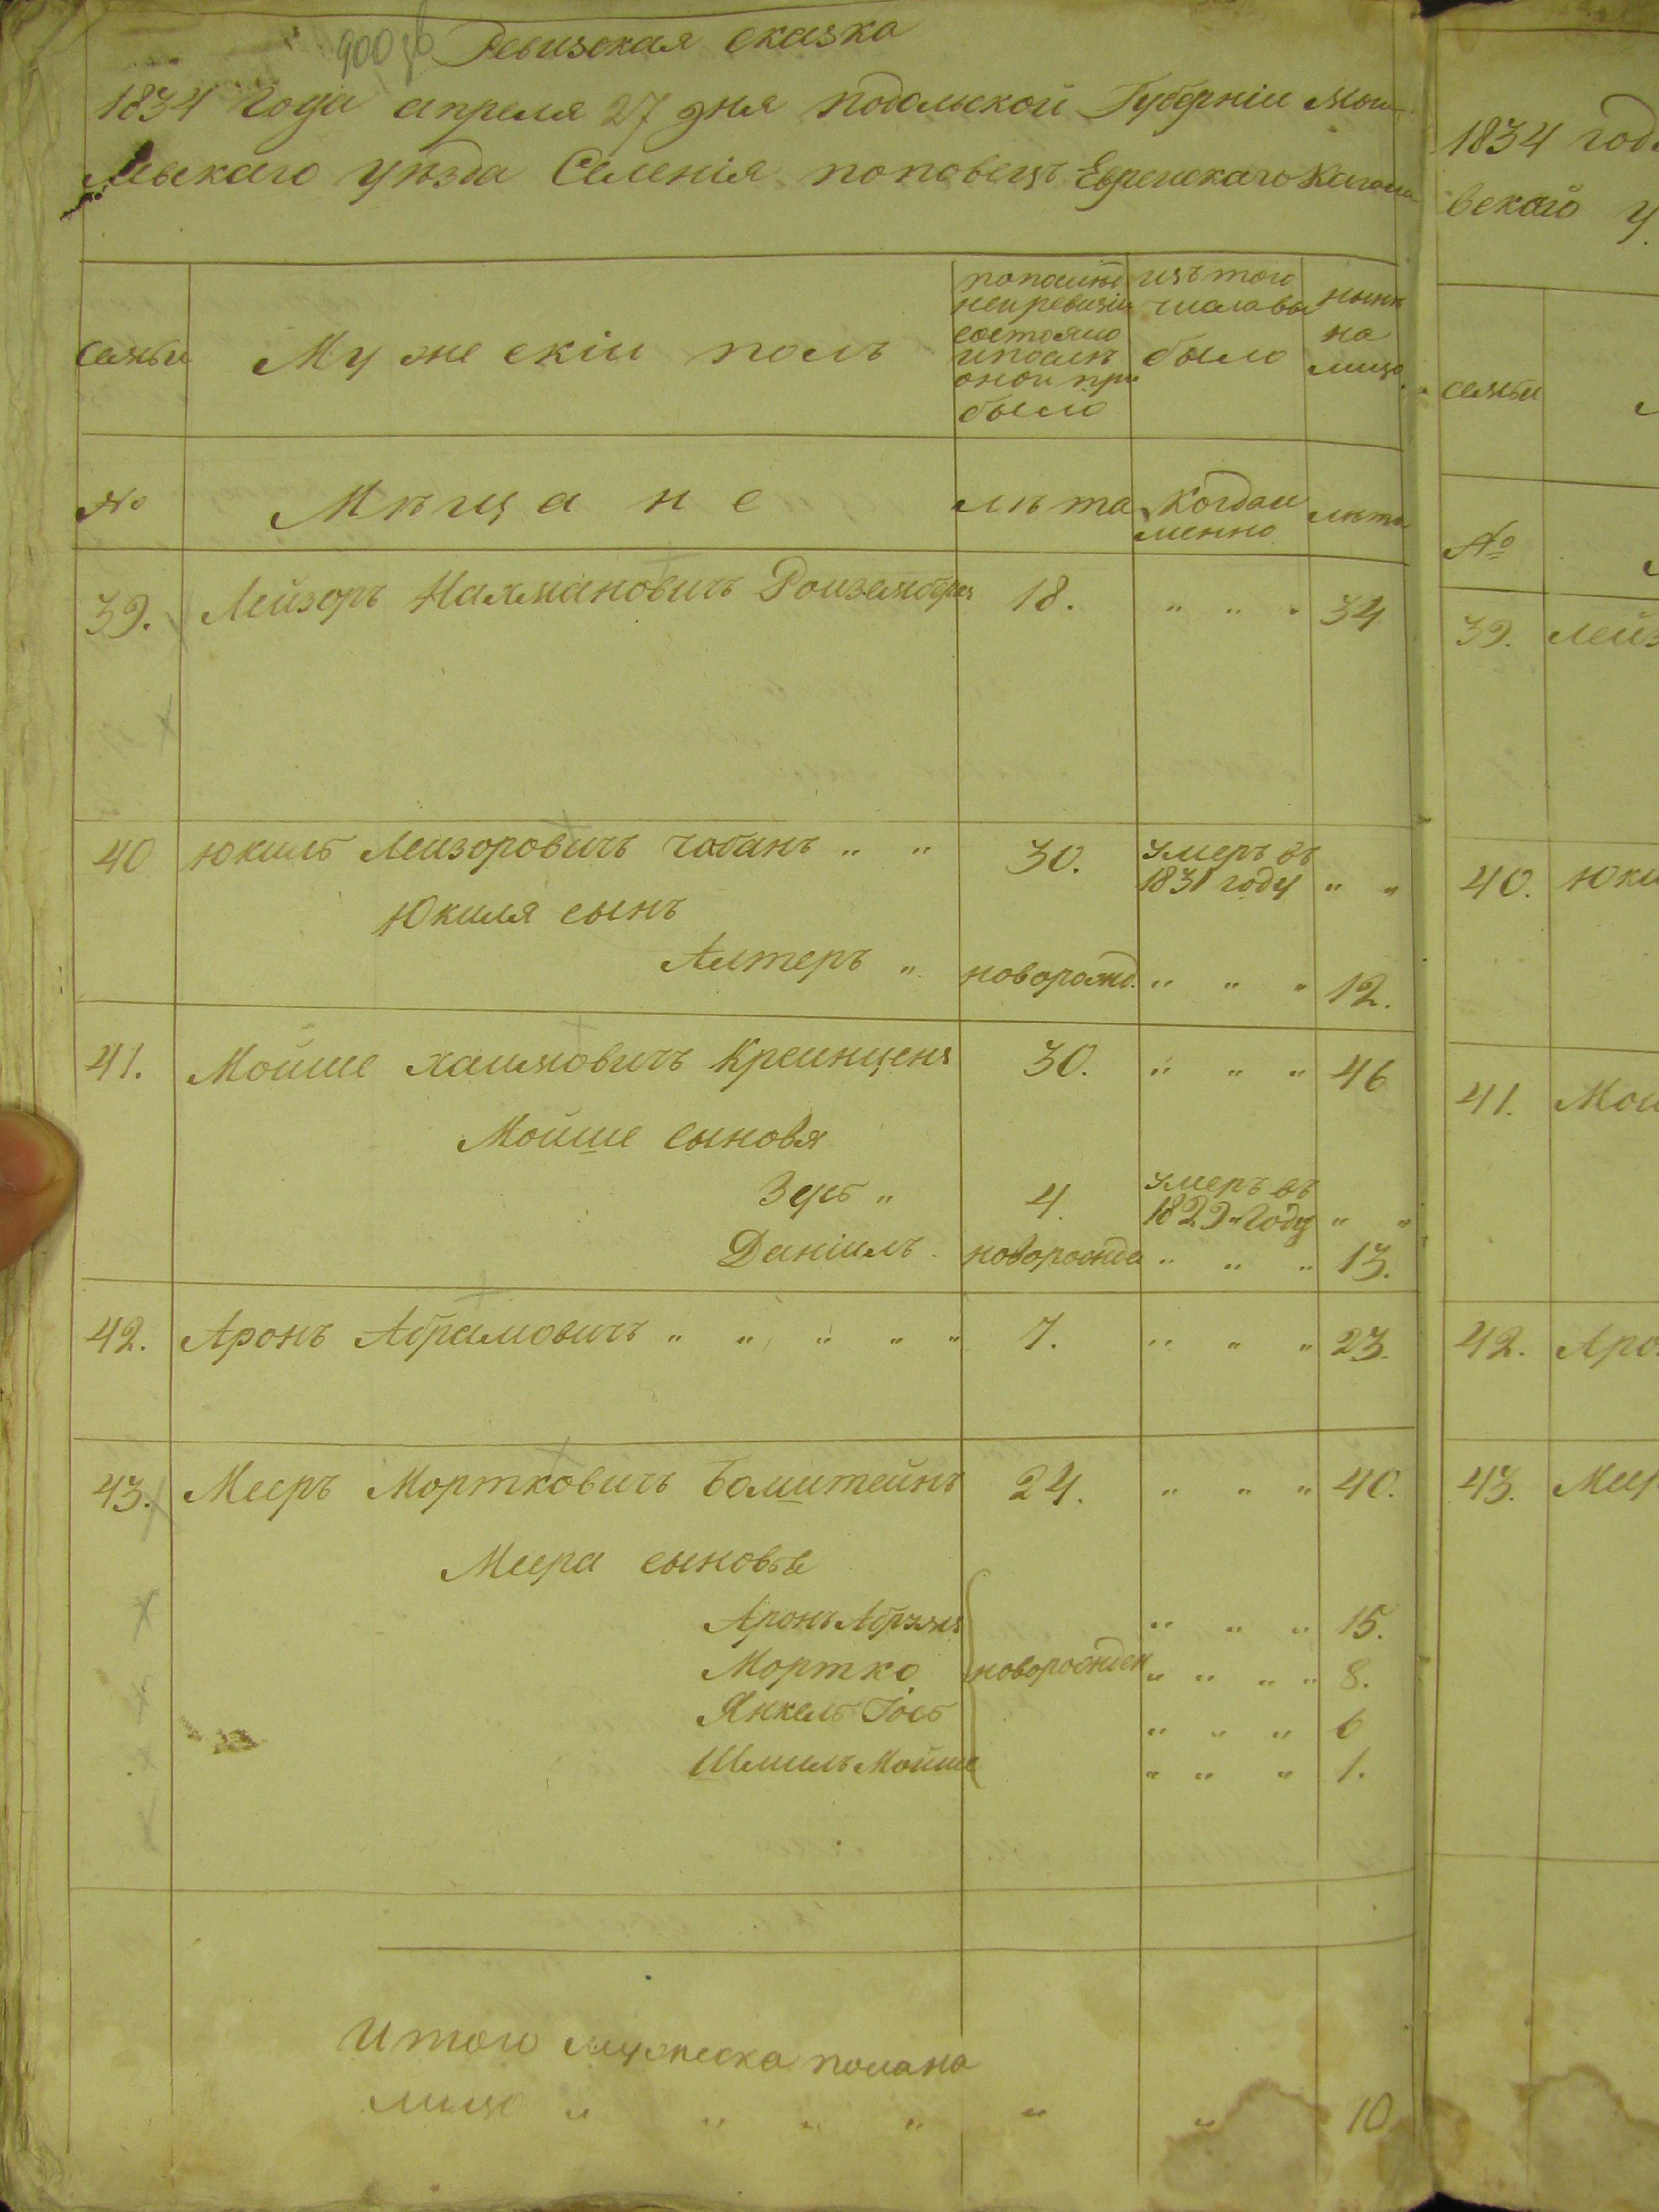 Ревизская сказка
1834 года апреля 27 дня подольской Губерніи Мои-
левскаго уѣзда Селенія поповецъ Еврейскаго Кагала
семьи
Мужескій полъ
по послѣд
ней ревизіи
состояло
и послѣ
оной при
было
изъ того
числа вы
было
нынѣ
на
лицо
№
Мѣщане
лѣта
Когда и
менно
лѣта
39. Лейзоръ Нахмановичъ 18. " " " 34
40 Юкиль Лейзоровичъ Чобанъ " " 30. умеръ въ
1831 году " "
Юкиля сынъ
Алтеръ " новорожд. " " " 12.
41. Мойше Хаимовичъ 30. " " " 46
Мойше сыновя
4. умеръ въ
1829 году " "
Даніилъ новорожде " " " 13.
42. Аронъ Абрамовичъ " " " " " 7. " " " 23.
43. Мееръ Мортковичъ Бомштейнъ 24. " " " 40.
Меера сыновья
Аронъ Абрамъ " " " 15.
Мортко новорожден " " " " 8.
Янкель Іось " " " 6
Шмиль Мойше " " " 1.
Итого мужеска пола на
лицо " " " " " " 10
1834 год
вскаго у
семьи
№
39. Лейз
40. Юки
41. Мой
42. Аро
43. Мее